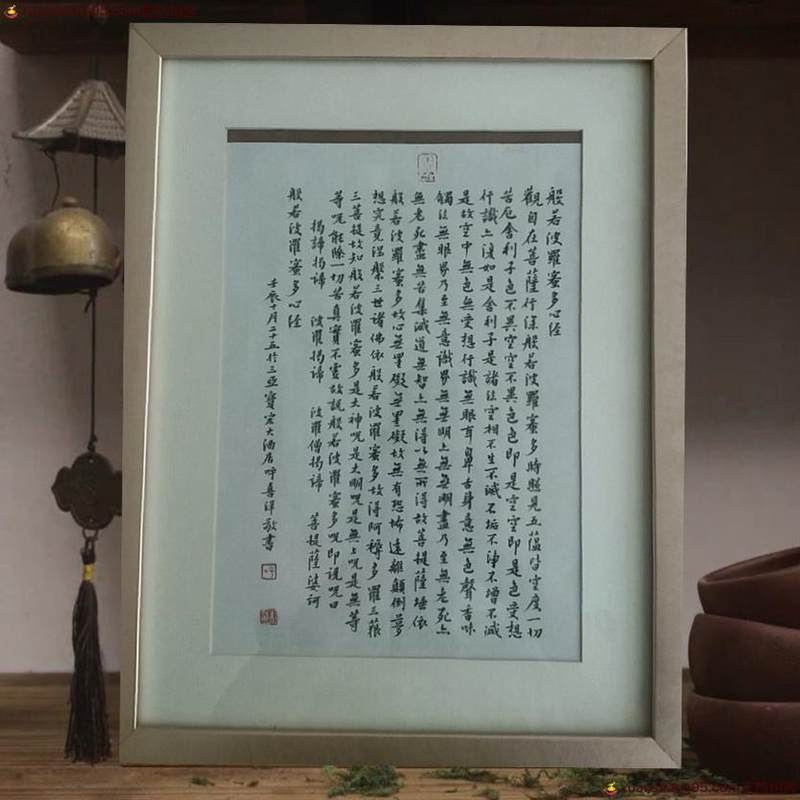 般若波羅蜜多心经
觀自在菩薩行深般若波羅蜜多時照見五蕴皆空度一切
苦厄舍利子色不異空空不異色色即是空空即是色受想
行識亦復如是舍利子是諸法空相不生不滅不垢不净不增不減
是故空中無色無受想行識無眼耳鼻舌身意無色聲香味
觸法無眼界乃至無意識界無無明亦無無明盡乃至無老死亦
無老死盡無苦集滅道無智亦無得以無所得故菩提薩埵依
般若波羅蜜多故心無罣礙無罣礙故無有恐怖遠離顛倒夢
想究竟涅槃三世諸佛依般若波羅蜜多故得阿耨多羅三藐
三菩提故知般若波羅蜜多是大神呪是大明呪是無上呪是無等
等呪能除一切苦真實不虚故說般若波羅蜜多呪即說呪曰
揭諦揭諦 波羅揭諦 波羅僧揭諦 菩提薩婆訶
般若波羅蜜多心经
壬辰十月二十五於三亞寶宏大酒店呼喜洋敬書